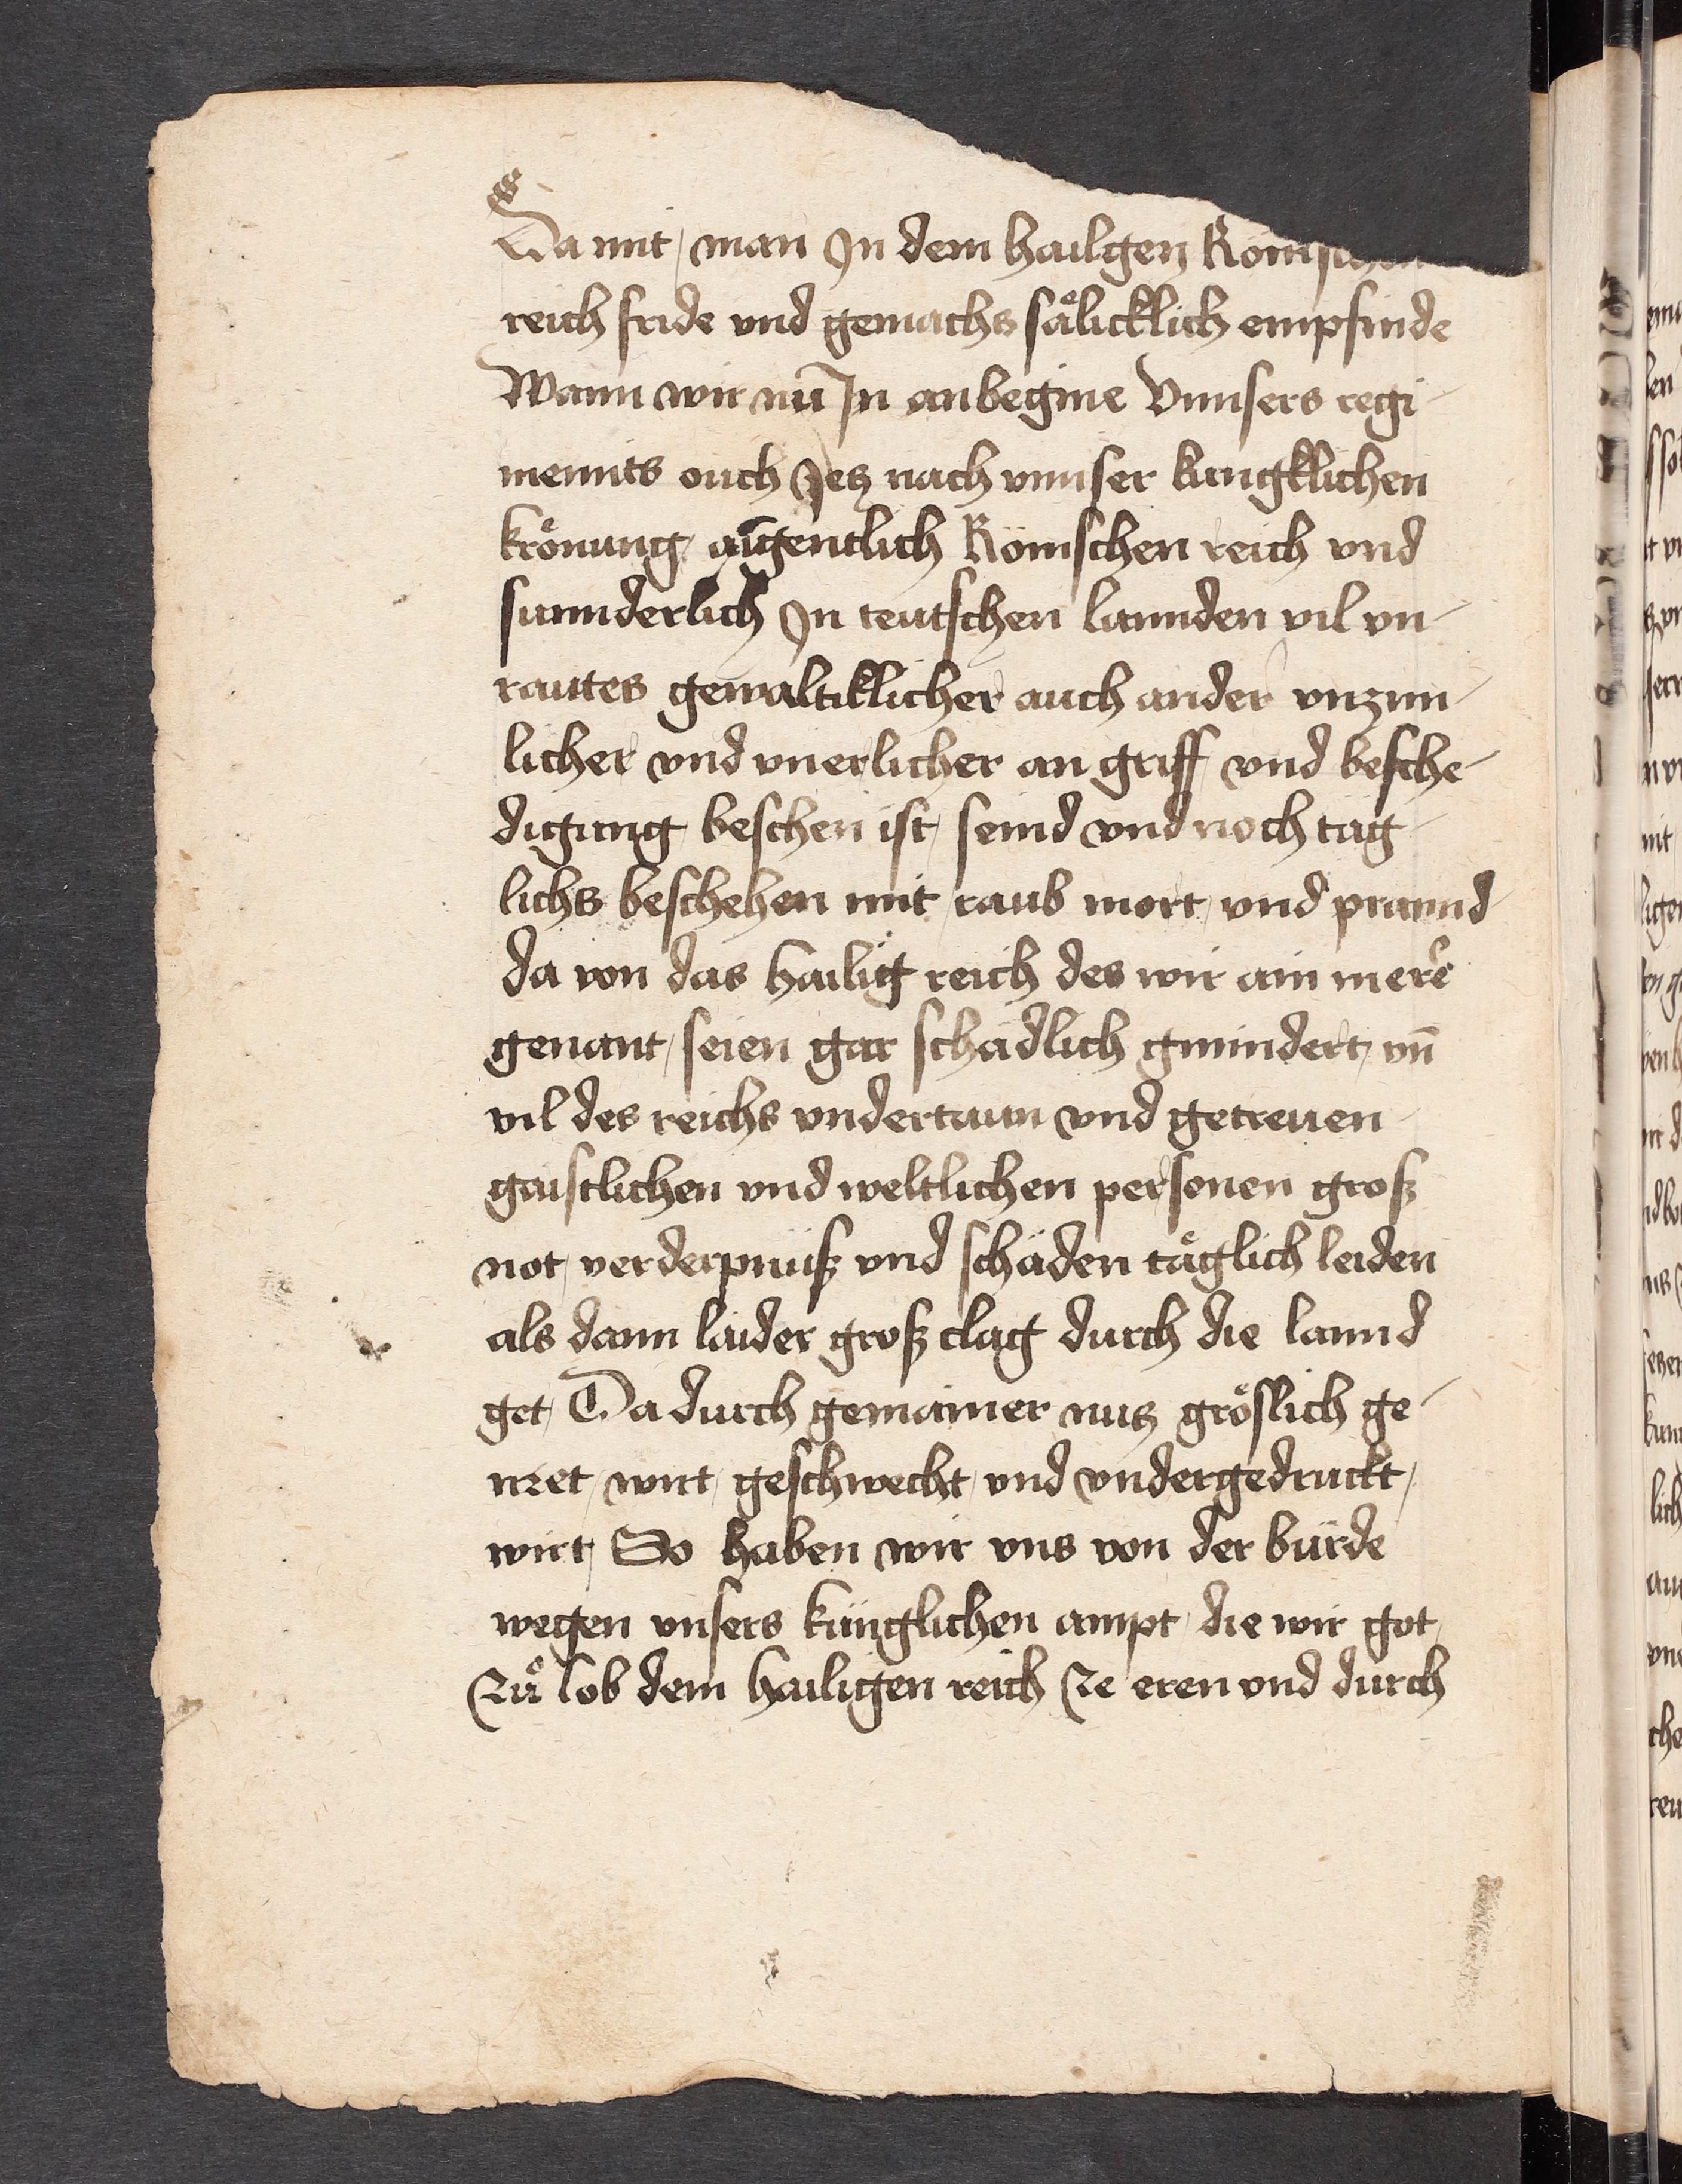 Da mit / man In dem hailgen Römschen
reich fride vnd gemachs sälicklich empfinde
Wann wir nu In anbegine Vnnsers regi-
mennts ouch Jetz nach vnnser kungklichen
krönung aigentlich Römschen reich vnd
sunnderlich In teutschen lannden vil vn-
rautes gewaltiklicher auch ander vnzim-
licher vnd vnerlicher an griff vnd besche-
digung beschen ist / seind vnd noch täg-
lichs beschehen mit raub mort vnd prannd
da von das hailig reich des wir ain merer
genant / seien gar schädlich gmindert / vn̄
vil des reichs vndertaun vnd getreuen
gaistlichen vnd weltlichen personen gross
not / verderpnuß vnd schäden täglich leiden
als dann laider groß clag durch die lannd
get / Da durch gemainer nutz gröslich ge-
irret / wirt / geschwecht / vnd vndergedruckt /
wirt / So haben wir vns von der bürde
wegen vnsers künglichen ampt / die wir got /
Zů lob dem hailigen reich Ze eren vnd durch